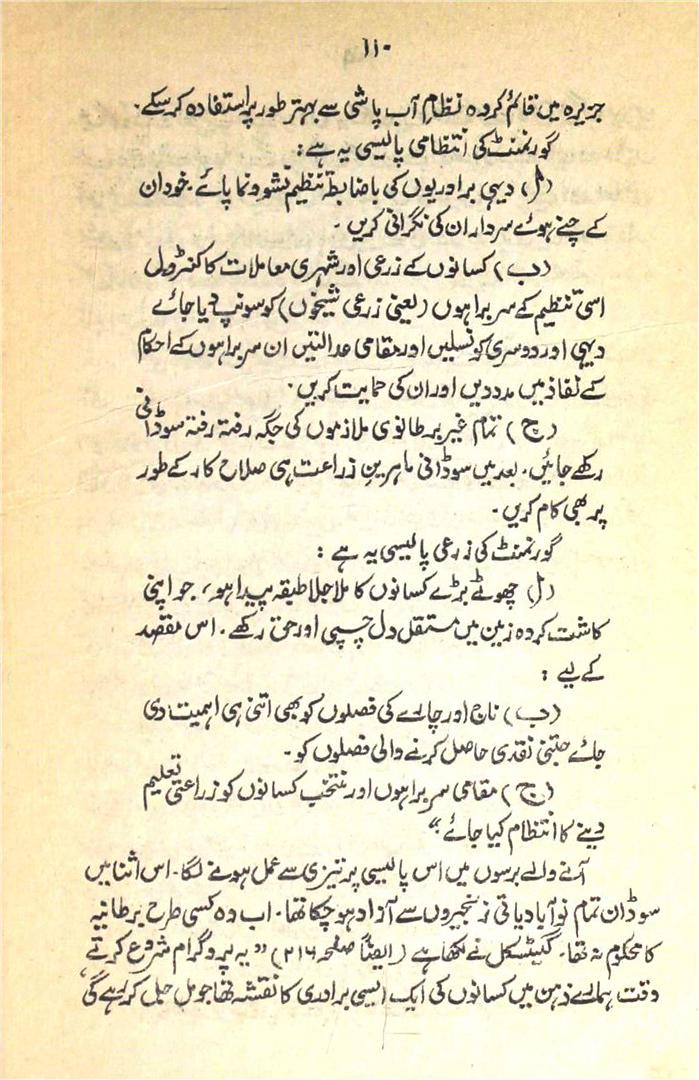 ۱۱۰
جزیرہ میں قائم کردہ نظامِ آب پاشی سے بہتر طور پر استفادہ کر سکے۔
گورنمنٹ کی انتظامی پالیسی یہ ہے :
(ا) دیہی برادریوں کی باضابطہ تنظیم نشوونما پائے۔ خود ان
کے چنے ہوئے سردار ان کی نگرانی کریں ۔
(ب) کسانوں کے زرعی اور شہری معاملات کا کنٹرول
اسی تنظیم کے سربراہوں (یعنی زرعی شیخوں) کو سونپ دیا جائے
دیہی اور دوسری کونسلیں اور مقامی عدالتیں ان سربراہوں کے احکام
کے نفاذ میں مدد دیں اور ان کی حمایت کریں۔
(ج) تمام غیر برطانوی ملازموں کی جگہ رفتہ رفتہ سوڈانی
رکھے جائیں۔ بعد میں سوڈانی ماہرینِ زراعت ہی صلاح کار کے طور
پر بھی کام کریں ۔
گورنمنٹ کی زرعی پالیسی یہ ہے :
(ا) چھوٹے بڑے کسانوں کا ملا جلا طبقہ پیدا ہو، جو اپنی
کاشت کردہ زمین میں مستقل دل چسپی اور حق رکھے ۔ اس مقصد
کے لیے :
(ب) ناج اور چارے کی فصلوں کو بھی اتنی ہی اہمیت دی
جائے جتنی نقدی حاصل کرنے والی فصلوں کو ۔
(ج) مقامی سربراہوں اور منتخب کسانوں کو زراعتی تعلیم
دینے کا انتظام کیا جائے ۔"
آنے والے برسوں میں اس پالیسی پر تیزی سے عمل ہونے لگا۔ اس اثنا میں
سوڈان تمام نوآبادیاتی زنجیروں سے آزاد ہو چکا تھا۔ اب وہ کسی طرح برطانیہ
کا محکوم نہ تھا۔ گیٹسکل نے لکھا ہے (ایضاً صفحہ ۲۱۶) "یہ پروگرام شروع کرتے
وقت ہمارے ذہن میں کسانوں کی ایک ایسی برادری کا نقشہ تھا جو مل جل کر رہے گی،